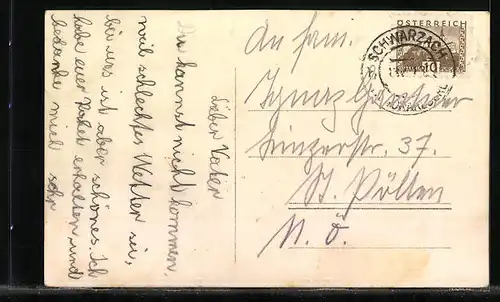 Lieber Vater
Du kannst nicht kommen,
weil schlechtes Wetter sei,
bei uns ist aber schönes. Ich
habe euer Paket erhalten, und
bedanke mich sehr
An Fam.
Ignaz
Linzerstr. 37.
St. Pölten
N. Ö.
ÖSTERREICH
10
SCHWARZACH